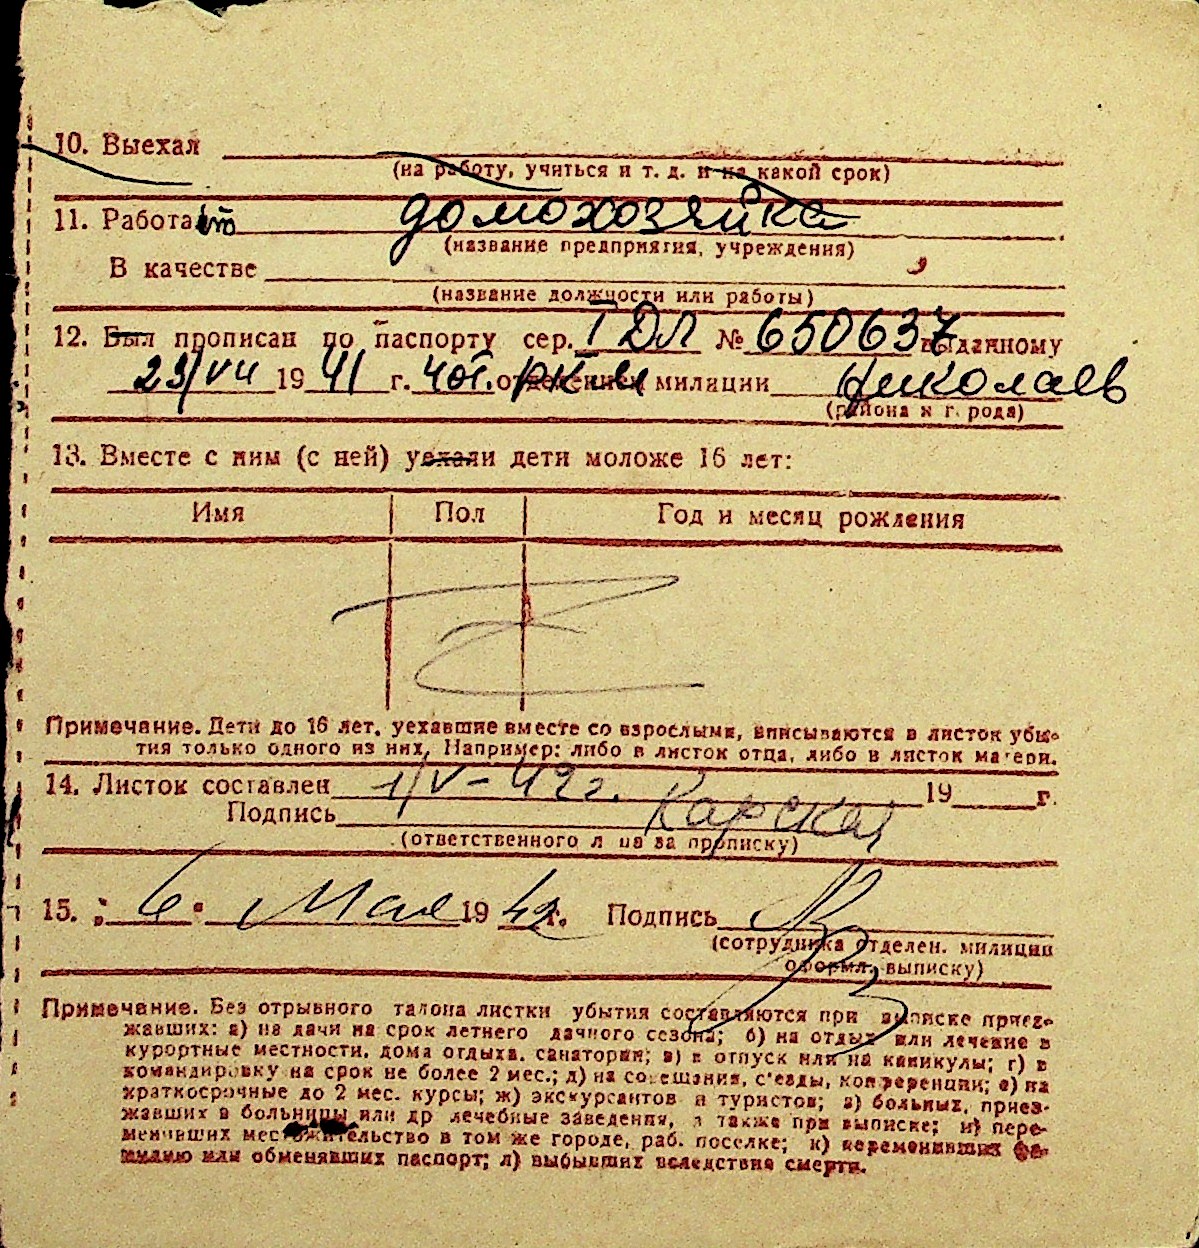 10. Выехал
(на работу, учиться и т. д. и на какой срок)
11. Работает домохозяйка
(название предприятия, учреждения)
В качестве
(название должности или работы)
12. Был прописан по паспорту сер. I ДЛ № 650637 выданному
23/VII 1941 г. 4 от. РКМ отделением милиции Николаев
(района и города)
13. Вместе с ним (с ней) уехали дети моложе 16 лет:
Имя Пол Год и месяц рождения
Примечание. Дети до 16 лет, уехавшие вместе со взрослыми, вписываются в листок убы-
тия только одного из них. Например: либо в листок отца, либо в листок матери.
14. Листок составлен 1/V-42г. 19 г.
Подпись Карская
(ответственного лица за прописку)
15. „6" Мая 1942г. Подпись
(сотрудника отделен. милиции
оформл. выписку)
Примечание. Без отрывного талона листки убытия составляются при выписке приез-
жавших: а) на дачи на срок летнего дачного сезона; б) на отдых или лечение в
курортные местности, дома отдыха, санатории; в) в отпуск или на каникулы; г) в
командировку на срок не более 2 мес.; д) на совещания, с'езды, конференции; е) на
краткосрочные до 2 мес. курсы; ж) экскурсантов и туристов; з) больных, приез-
жавших в больницы или др лечебные заведения, а также при выписке; и) пере-
менивших местожительство в том же городе, раб. поселке; к) переменивших фа-
милию или обменявших паспорт; л) выбывших вследствие смерти.